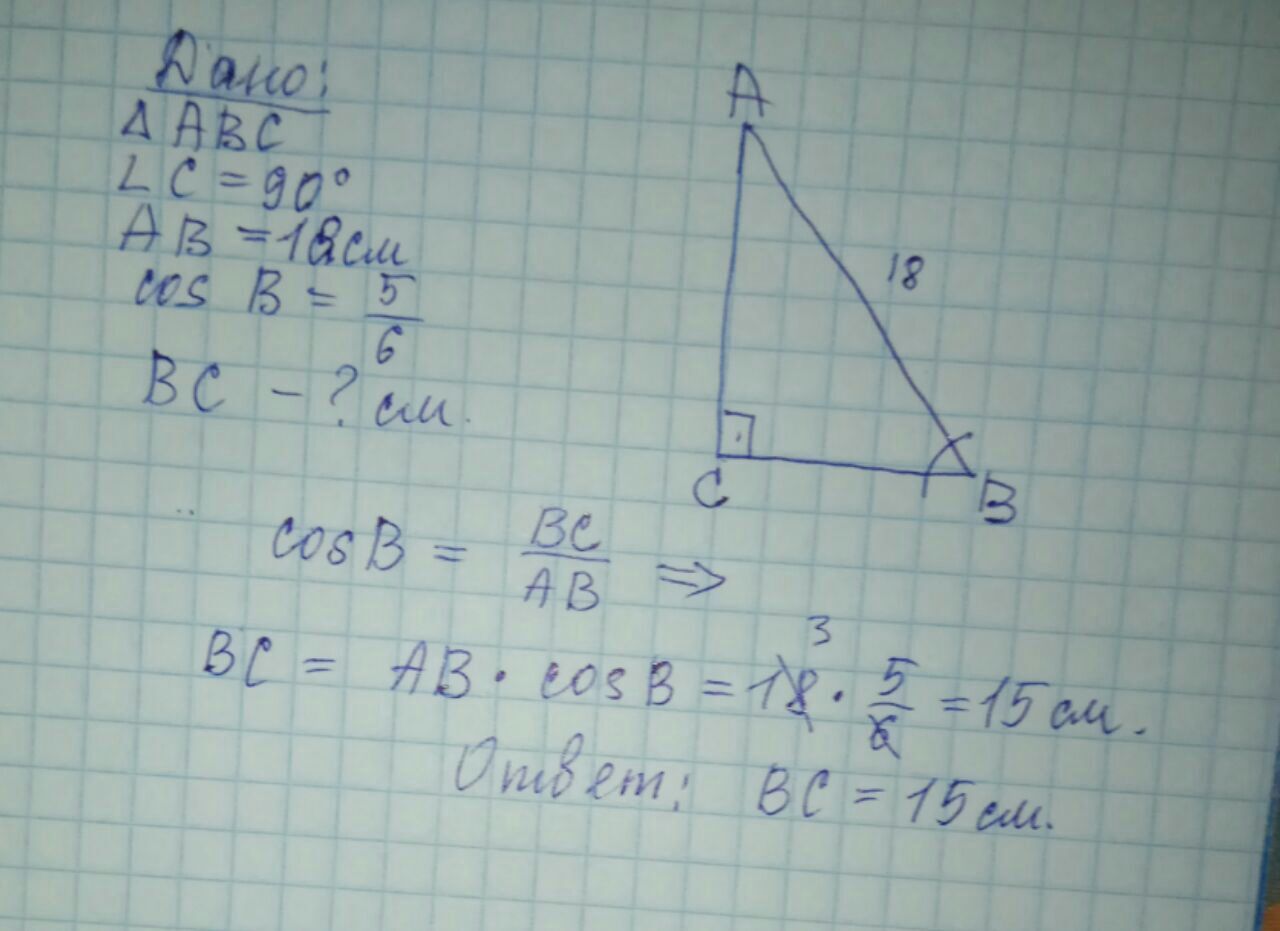 Дано:
Δ ABC
∠ C = 90°
AB = 18см
cos B = 5/6
BC - ? см.
A
18
C
B
cosB = BC/AB ⇒
3
BC = AB · cosB = 18 · 5/6 = 15 см.
Ответ: BC = 15 см.